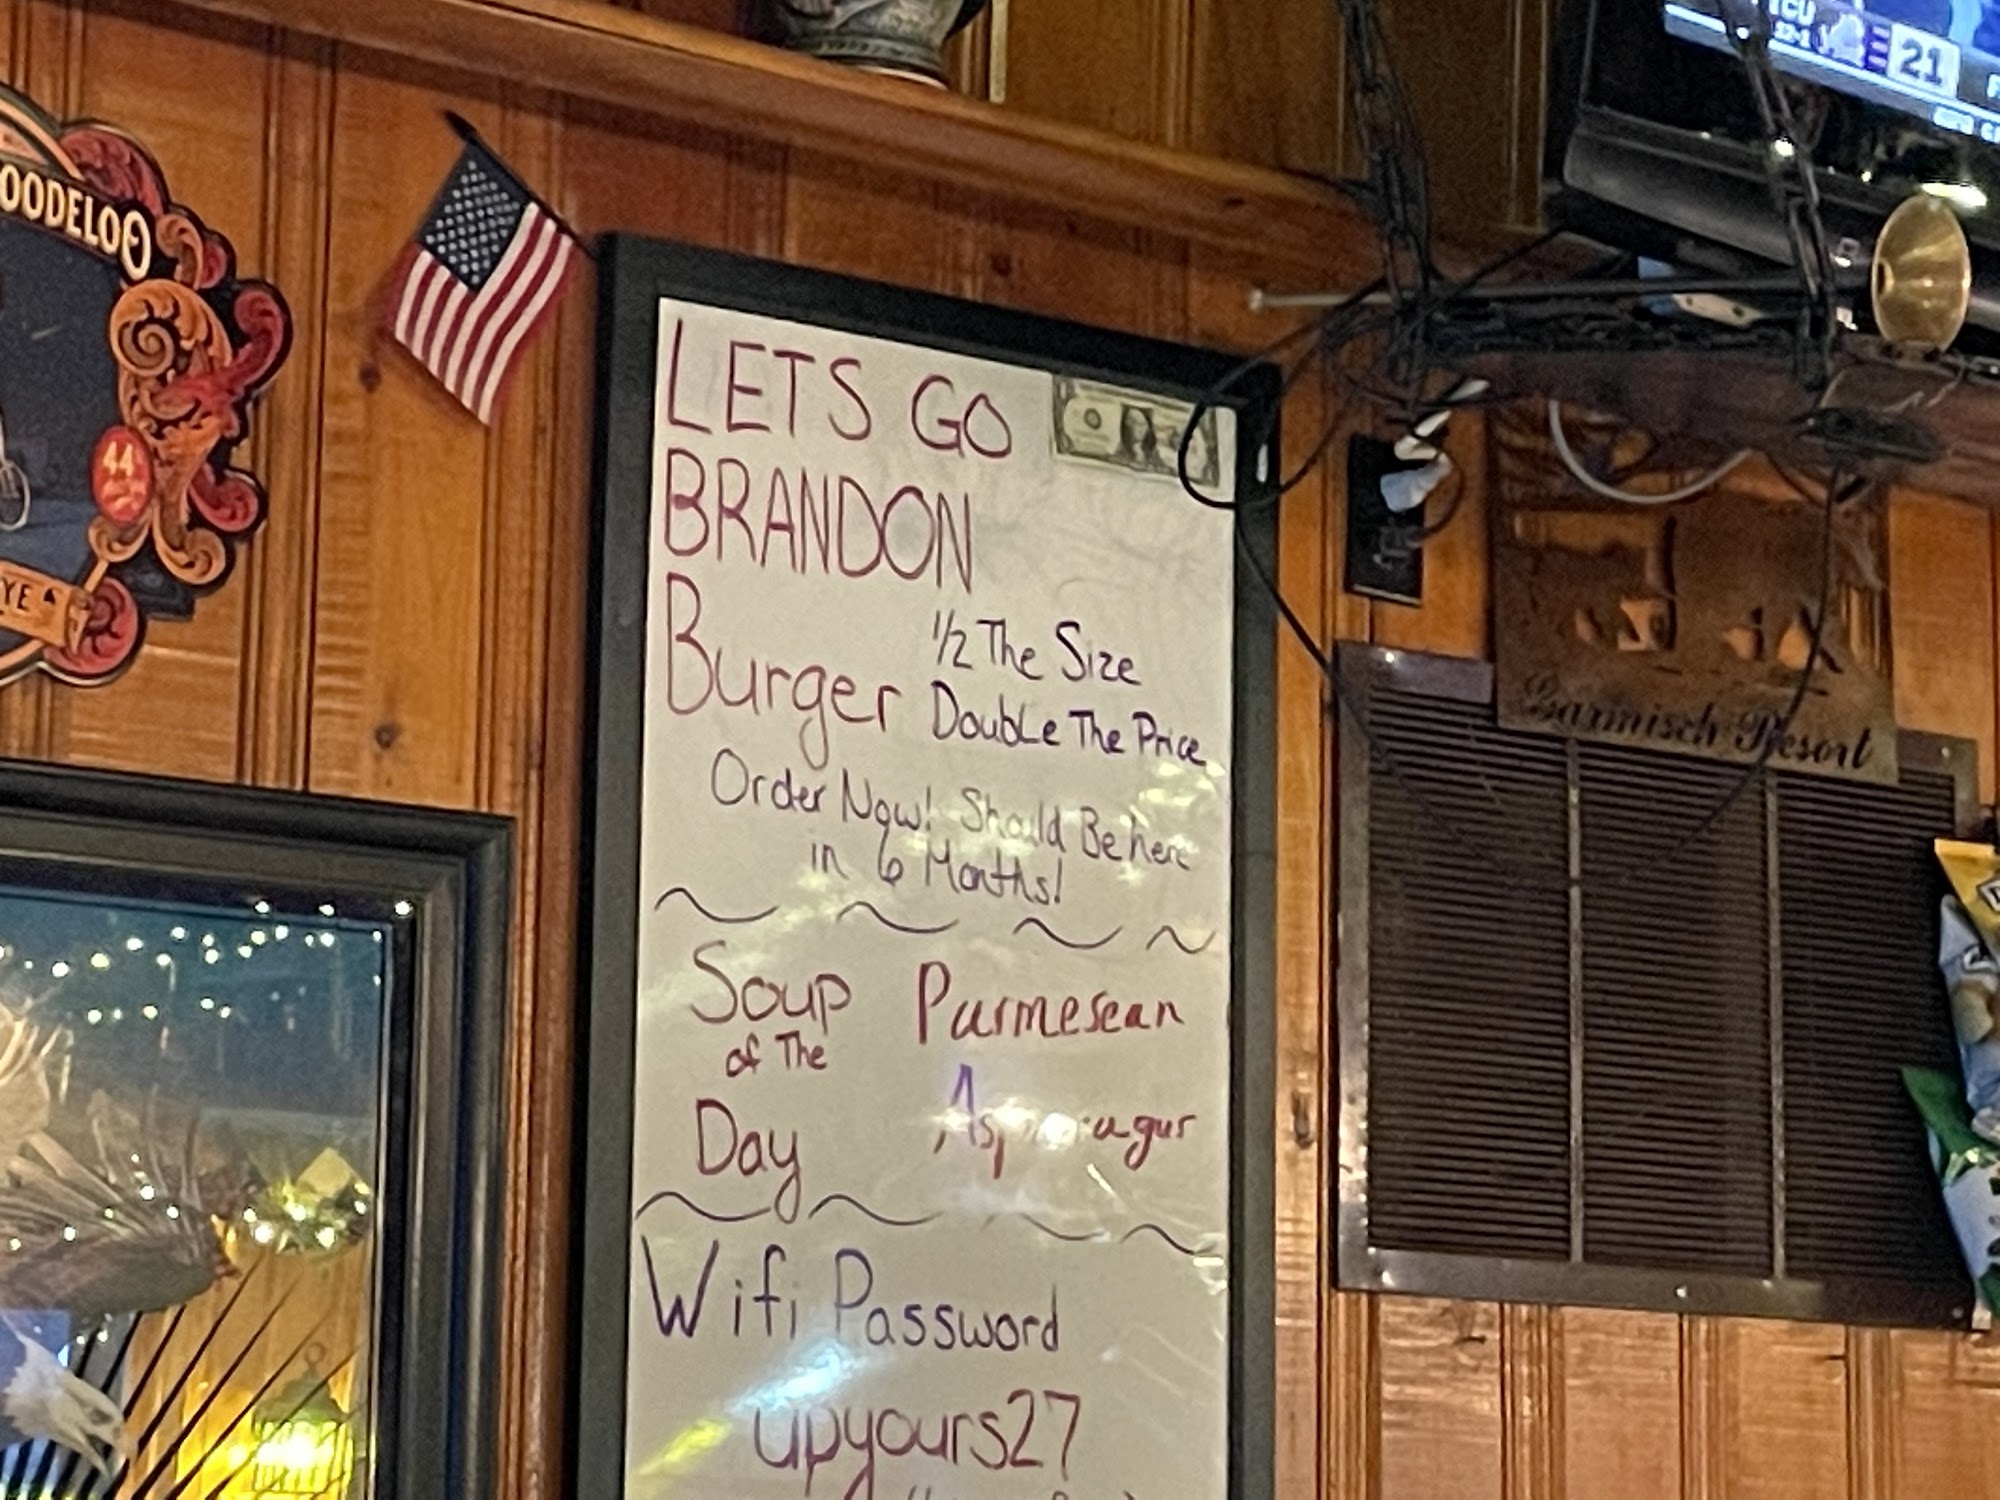 TCU
12-1
21
OODELOO
44
YE
LETS GO
BRANDON
Burger
1/2 The Size
Double The Price
Order Now! Should Be here
in 6 Months!
Soup
of The
Day
Parmesean
Asparagus
Garmisch Resort
Wifi Password
upyours27